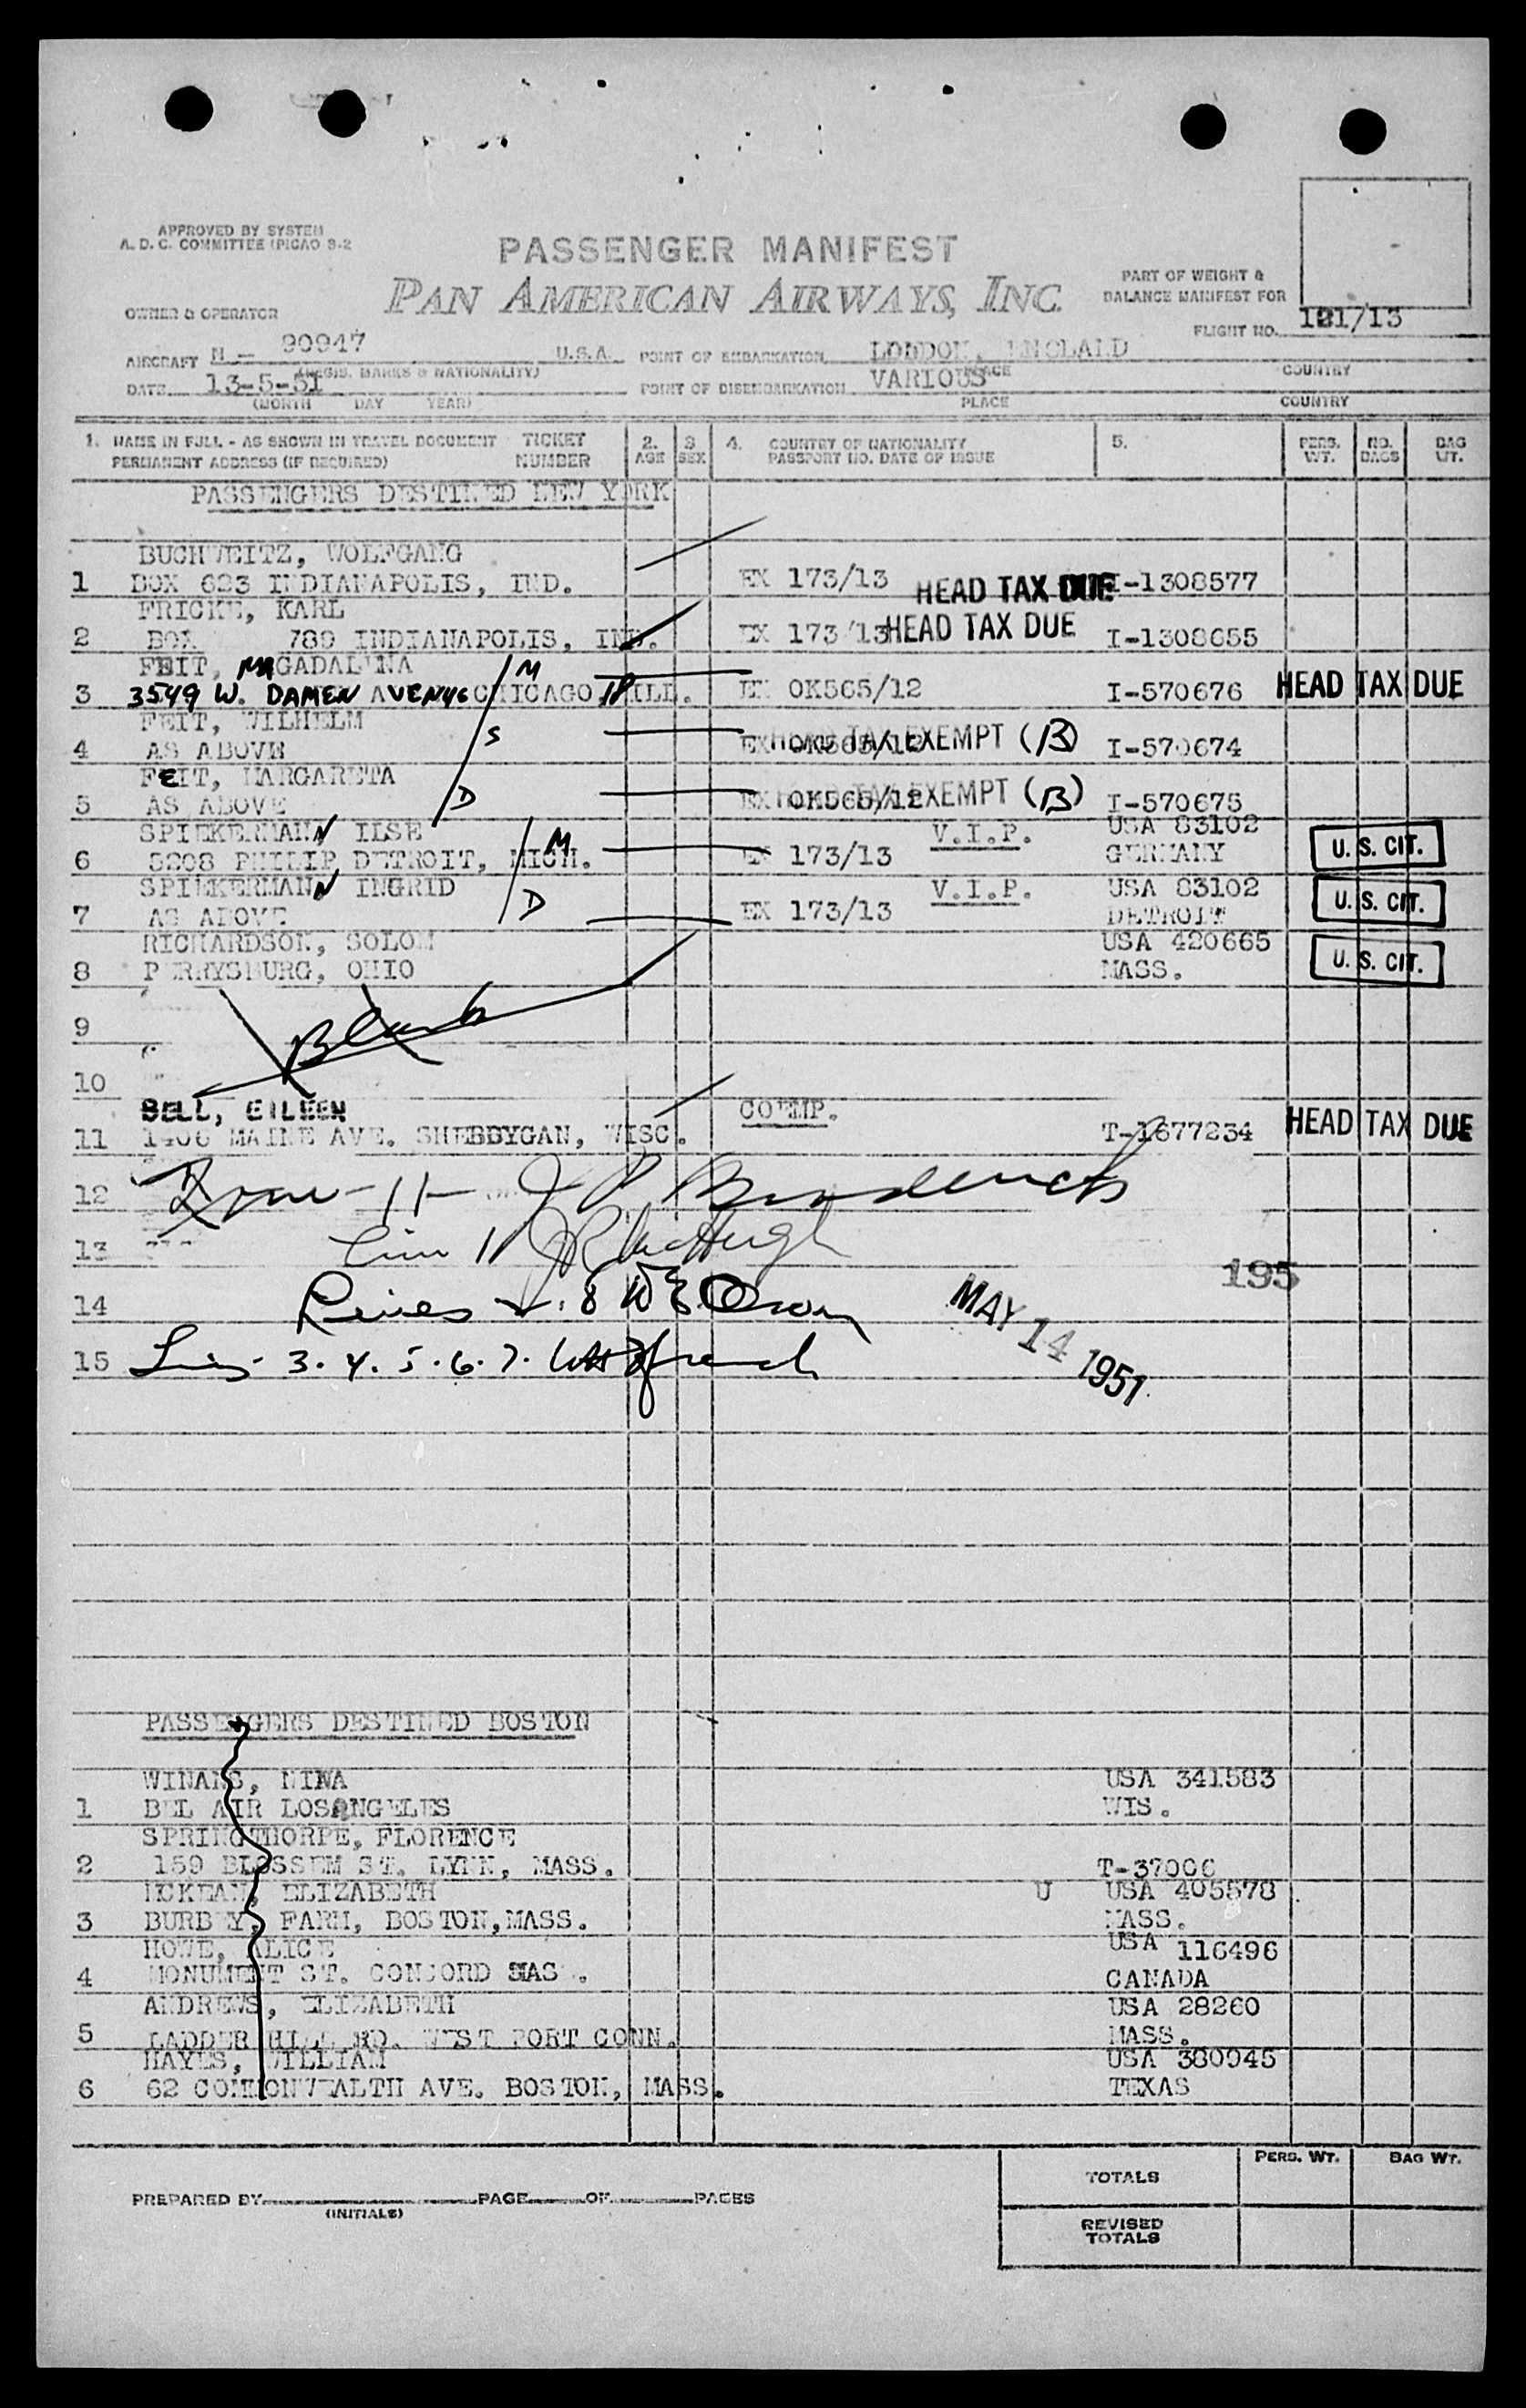 APPROVED BY SYSTEM
A. D. C. COMMITTEE (PICAO 9-2
PASSENGER MANIFEST
PAN AMERICAN AIRWAYS, INC.
PART OF WEIGHT &
BALANCE MANIFEST FOR
OWNER & OPERATOR
FLIGHT NO. 121/13
AIRCRAFT N - 90947 U.S.A. POINT OF EMBARKATION LONDON, ENGLAND
(REGIS. MARKS & NATIONALITY) PLACE COUNTRY
DATE 13-5-51 POINT OF DISEMBARKATION VARIOUS
(MONTH DAY YEAR) PLACE COUNTRY
1. NAME IN FULL - AS SHOWN IN TRAVEL DOCUMENT TICKET 2. 3 4. COUNTRY OF NATIONALITY 5. PERS. NO. BAG
PERMANENT ADDRESS (IF REQUIRED) NUMBER AGE SEX PASSPORT NO. DATE OF ISSUE WT. BAGS WT.
PASSENGERS DESTINED NEW YORK
BUCHWEITZ, WOLFGANG
1 BOX 623 INDIANAPOLIS, IND. EX 173/13 HEAD TAX DUE I-1308577
FRICKE, KARL
2 BOX 789 INDIANAPOLIS, IND. EX 173/13 HEAD TAX DUE I-1308655
FEIT, MAGADALENA M
3 3549 W. DAMEN AVENUE CHICAGO, ILL. EX OK565/12 I-570676 HEAD TAX DUE
FEIT, WILHELM S
4 AS ABOVE EX OK565/12 HEAD TAX EXEMPT (B) I-570674
FEIT, MARGARETA
5 AS ABOVE D EX OK565/12 HEAD TAX EXEMPT (B) I-570675
SPIEKERMANN ILSE M V.I.P. USA 83102
6 8208 PHILIP DETROIT, MICH. EX 173/13 GERMANY U.S. CIT.
SPIEKERMANN INGRID V.I.P. USA 83102
7 AS ABOVE D EX 173/13 DETROIT U.S. CIT.
RICHARDSON, SOLON USA 420665
8 PERRYSBURG, OHIO MASS. U.S. CIT.
9 Blank
10
BELL, EILEEN COEMP.
11 1406 MAINE AVE. SHEBBYGAN, WISC. T-1677234 HEAD TAX DUE
12
13
195
14
MAY 14 1951
15 3. 4. 5. 6. 7.
PASSENGERS DESTINED BOSTON
WINANS, NINA USA 341583
1 BEL AIR LOSANGELES WIS.
SPRINGTHORPE, FLORENCE
2 159 BLOSSEM ST. LYNN, MASS. T-37006
MCKEAN, ELIZABETH U USA 405578
3 BURBEY, FARM, BOSTON, MASS. MASS.
HOWE, ALICE USA 116496
4 MONUMENT ST. CONCORD MAS. CANADA
ANDREWS, ELIZABETH USA 28260
5 LADDER HILL RD. WEST PORT CONN. MASS.
HAYES, WILLIAM USA 380945
6 62 COMMONWEALTH AVE. BOSTON, MASS. TEXAS
TOTALS PERS. WT. BAG WT.
PREPARED BY PAGE OF PAGES
(INITIALS)
REVISED
TOTALS